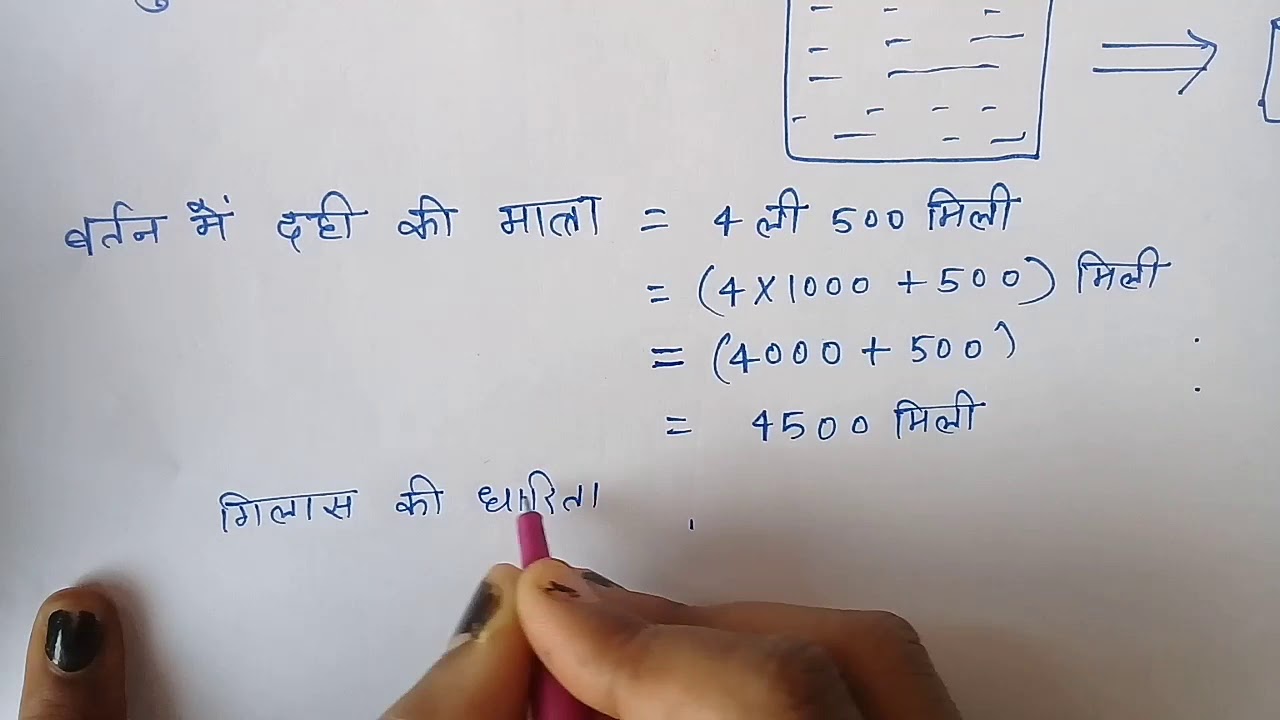 बर्तन में दही की मात्रा = 4 ली 500 मिली
= (4×1000 + 500) मिली
= (4000 + 500)
= 4500 मिली
गिलास की धारिता